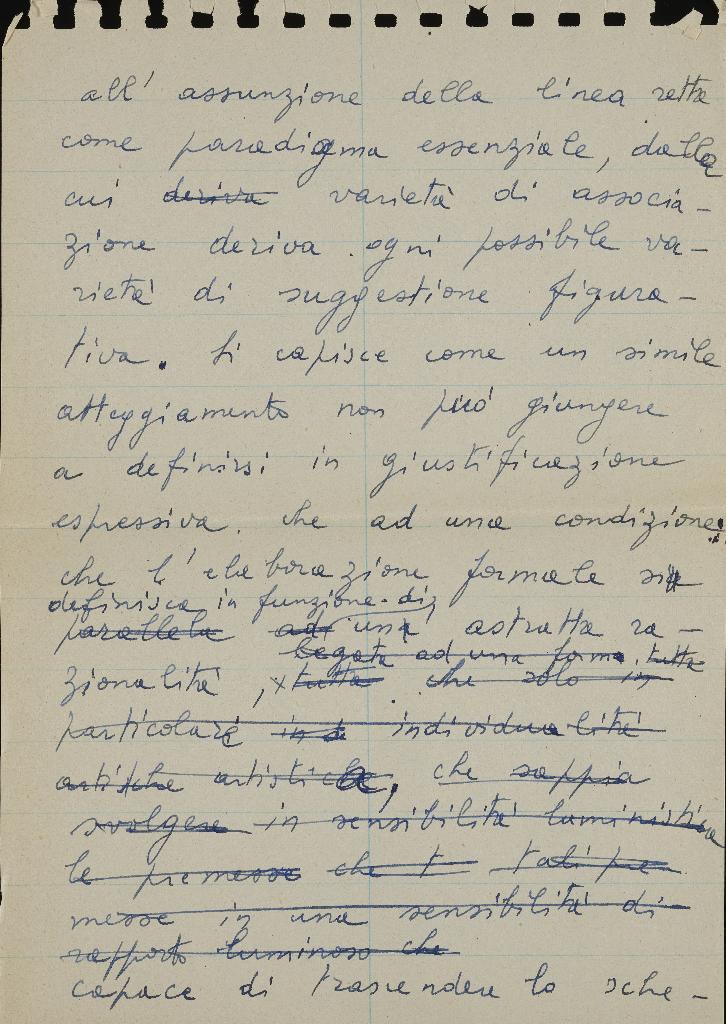 all' assunzione della linea retta
come paradigma essenziale, dalla
cui deriva varietà di associa-
zione deriva ogni possibile va-
rietà di suggestione figura-
tiva. Si capisce come un simile
atteggiamento non può giungere
a definirsi in giustificazione
espressiva che ad una condizione:
che l'elaborazione formale si
definisca in funzione di
parallela ad una astratta ra-
legata ad una forma tutta
zionalità, tutta che solo in
particolare in individualità
artistiche artistica, che sappia
svolgere in sensibilità luministica
le premesse che t tali pre-
messe in una sensibilità di
rapporto luminoso che
capace di trascendere lo sche-